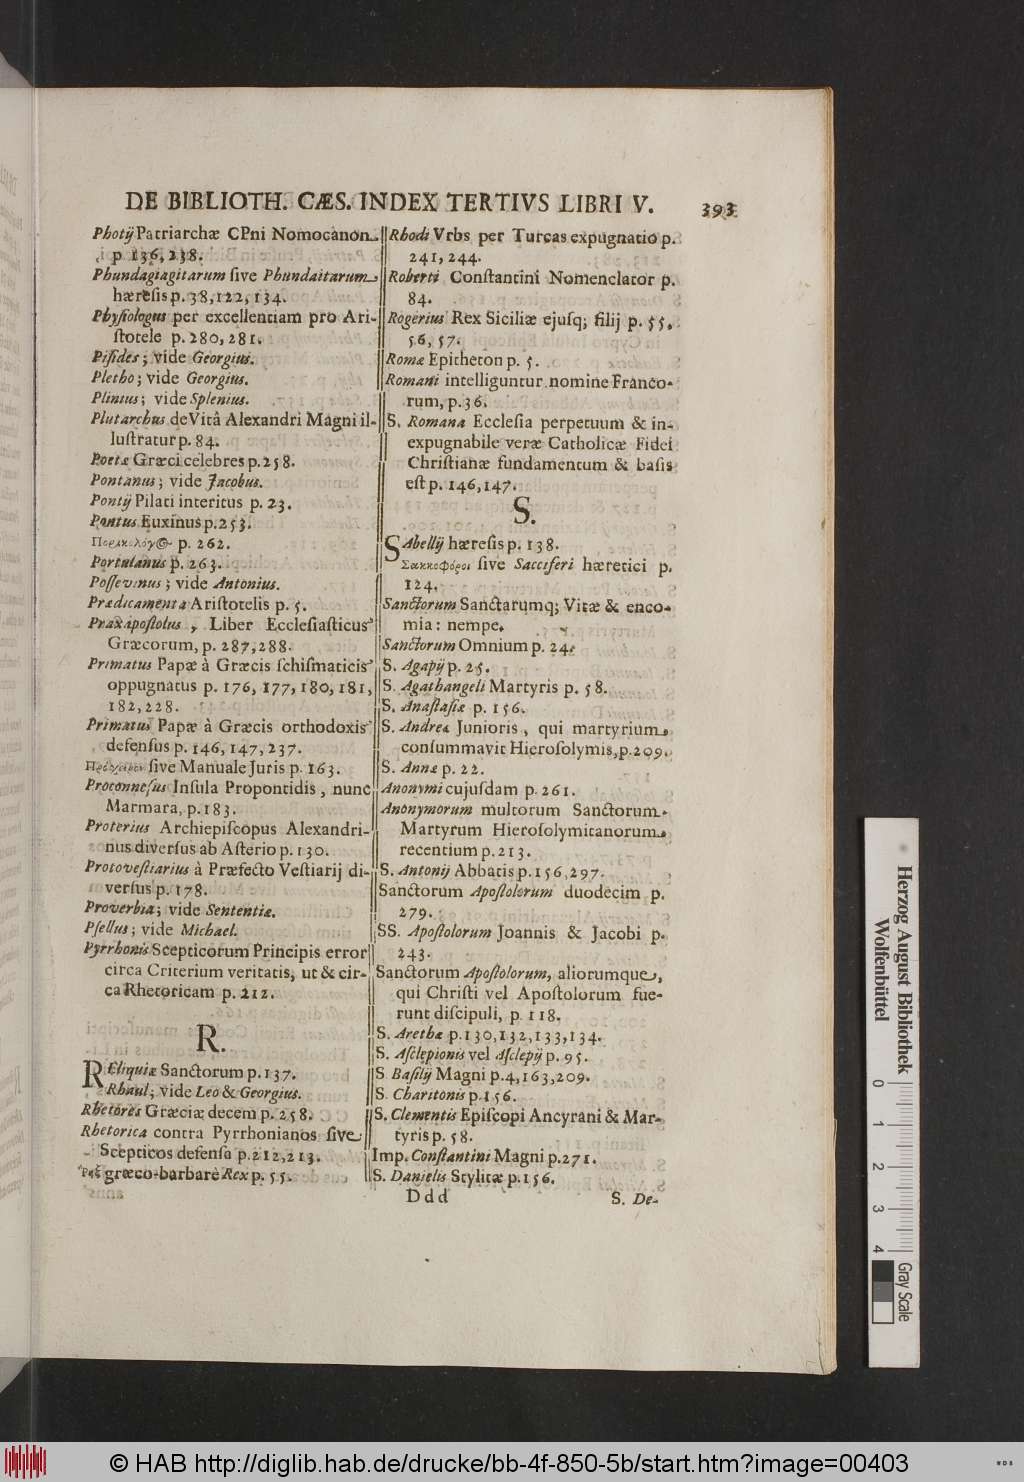 DE BIBLIOTH. CÆS. INDEX TERTIVS LIBRI V. 393
Photij Patriarchæ CPni Nomocanon
p. 136, 238.
Phundagiagitarum ſive Phundaitarum
hæreſis p. 38, 122, 134.
Phyſiologus per excellentiam pro Ari-
ſtotele p. 280, 281.
Piſides; vide Georgius.
Pletho; vide Georgius.
Plinius; vide Splenius.
Plutarchus de Vitâ Alexandri Magni il-
luſtratur p. 84.
Poetæ Græci celebres p. 258.
Pontanus; vide Jacobus.
Pontij Pilati interitus p. 23.
Pontus Euxinus p. 253.
p. 262.
Portulanus p. 263.
Poſſevinus; vide Antonius.
Prædicamenta Ariſtotelis p. 5.
Praxapoſtolus, Liber Eccleſiaſticus
Græcorum, p. 287, 288.
Primatus Papæ à Græcis ſchiſmaticis
oppugnatus p. 176, 177, 180, 181,
182, 228.
Primatus Papæ à Græcis orthodoxis
defenſus p. 146, 147, 237.
Πρόχειρον ſive Manuale Juris p. 163.
Proconneſus Inſula Propontidis, nunc
Marmara, p. 183.
Proterius Archiepiſcopus Alexandri-
nus diverſus ab Aſterio p. 130.
Protoveſtiarius à Præfecto Veſtiarij di-
verſus p. 178.
Proverbia; vide Sententiæ.
Pſellus; vide Michael.
Pyrrhonis Scepticorum Principis error
circa Criterium veritatis, ut & cir-
ca Rhetoricam p. 212.
R.
REliquiæ Sanctorum p. 137.
Rhaul; vide Leo & Georgius.
Rhetores Græciæ decem p. 258.
Rhetorica contra Pyrrhonianos ſive
Scepticos defenſa p. 212, 213.
græco-barbarè Rex p. 55.
Rhodi Vrbs per Turcas expugnatio p.
241, 244.
Roberti Conſtantini Nomenclator p.
84.
Rogerius Rex Siciliæ ejuſq; filij p. 55,
56, 57.
Romæ Epitheton p. 5.
Romani intelliguntur nomine Franco-
rum, p. 36.
S. Romana Eccleſia perpetuum & in-
expugnabile veræ Catholicæ Fidei
Chriſtianæ fundamentum & baſis
eſt p. 146, 147.
S.
SAbellij hæreſis p. 138.
Σακκοφόροι ſive Sacciferi hæretici p.
124.
Sanctorum Sanctarumq; Vitæ & enco-
mia: nempe,
Sanctorum Omnium p. 24.
S. Agapij p. 25.
S. Agathangeli Martyris p. 58.
S. Anaſtaſiæ p. 156.
S. Andreæ Junioris, qui martyrium
conſummavit Hieroſolymis, p. 209.
S. Annæ p. 22.
Anonymi cujuſdam p. 261.
Anonymorum multorum Sanctorum
Martyrum Hieroſolymitanorum
recentium p. 213.
S. Antonij Abbatis p. 156, 297.
Sanctorum Apoſtolorum duodecim p.
279.
SS. Apoſtolorum Joannis & Jacobi p.
243.
Sanctorum Apoſtolorum, aliorumque,
qui Chriſti vel Apoſtolorum fue-
runt diſcipuli, p. 118.
S. Arethæ p. 130, 132, 133, 134.
S. Aſclepionis vel Aſclepij p. 95.
S Baſilij Magni p. 4, 163, 209.
S. Charitonis p. 156.
S. Clementis Epiſcopi Ancyrani & Mar-
tyris p. 58.
Imp. Conſtantini Magni p. 271.
S. Danielis Stylitæ p. 156.
Ddd S. De-
Herzog August Bibliothek
Wolfenbüttel
0 1 2 3 4
Gray Scale
© HAB http://diglib.hab.de/drucke/bb-4f-850-5b/start.htm?image=00403